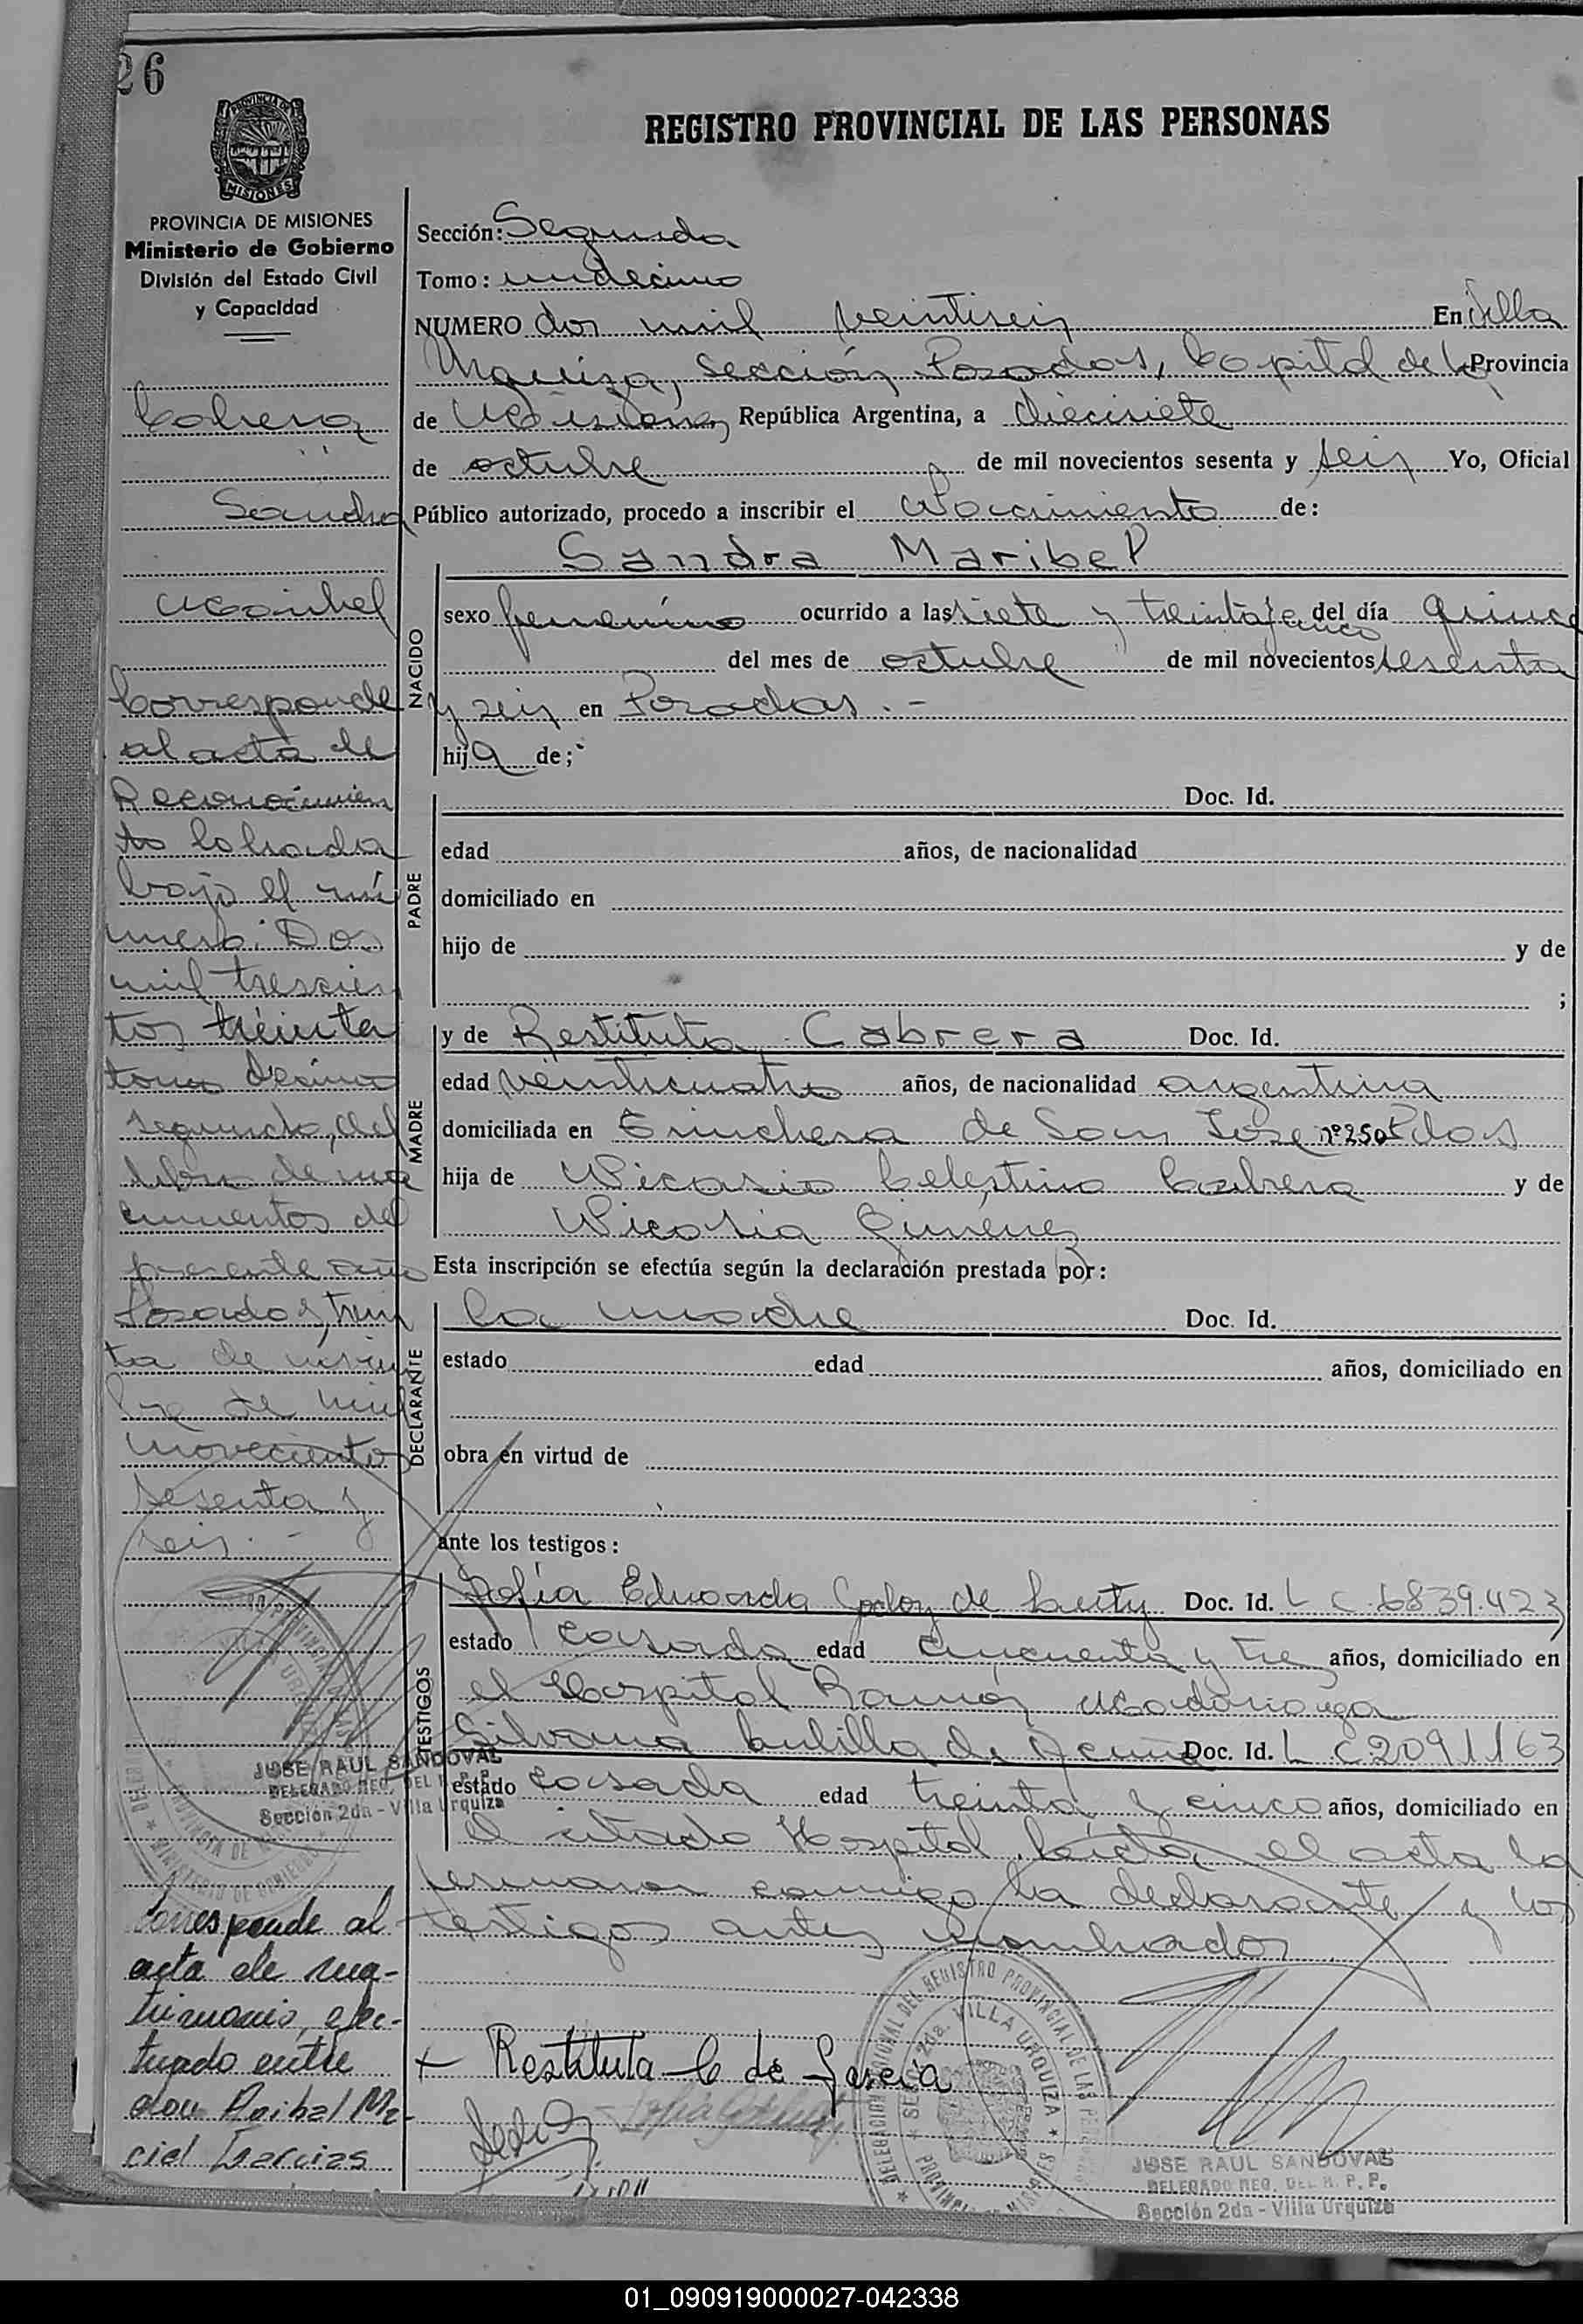 26
PROVINCIA DE
MISIONES
REGISTRO PROVINCIAL DE LAS PERSONAS
PROVINCIA DE MISIONES
Ministerio de Gobierno
División del Estado Civil
y Capacidad
Cabrera
Sandra
Maribel
Corresponde
al acta de
Reconocimien
to labrada
bajo el nú
mero: Dos
mil trescien
tos treinta
tomo décimo
segundo, del
libro de na
cimientos del
presente año
Posadas, trein
ta de noviem
bre de mil
novecientos
sesenta y
seis. -
JOSE RAUL SANDOVAL
DELEGADO REG. DEL R. P. P.
Sección 2da - Villa Urquiza
Corresponde al
acta de ma-
trimonio, efec-
tuado entre
don Anibal Ma-
cial Garcias
Sección: Segunda
Tomo: undecimo
NUMERO dos mil veintiseis En Villa
Urquiza, Sección Posadas, Capital de la Provincia
de Misiones, República Argentina, a diecisiete
de octubre de mil novecientos sesenta y seis Yo, Oficial
Público autorizado, procedo a inscribir el Nacimiento de:
Sandra Maribel
NACIDO
sexo femenino ocurrido a las siete y treinta y cinco del día quince
del mes de octubre de mil novecientos sesenta
y seis en Posadas. -
hija de;
PADRE
Doc. Id.
edad años, de nacionalidad
domiciliado en
hijo de y de
;
MADRE
y de Restituta Cabrera Doc. Id.
edad veinticuatro años, de nacionalidad argentina
domiciliada en Trinchera de San José nº 250 Pdas
hija de Nicasio Celestino Cabrera y de
Nicasia Gimenez
Esta inscripción se efectúa según la declaración prestada por:
DECLARANTE
La madre Doc. Id.
estado edad años, domiciliado en
obra en virtud de
ante los testigos:
TESTIGOS
Sofía Eduarda Godoy de Doc. Id. L C 6839.423
estado casada edad cincuenta y tre años, domiciliado en
el Hospital Ramón Madariaga
Silvana de Acuña Doc. Id. L C 2091163
estado casada edad treinta y cinco años, domiciliado en
el citado Hospital. Leida el acta la
firmaron conmigo la declarante y los
testigos antes nombrados
+ Restituta C de Garcia
DELEGACION SECCIONAL DEL REGISTRO PROVINCIAL DE LAS PERSONAS
SEC. 2da. VILLA URQUIZA
PROVINCIA DE MISIONES
JOSE RAUL SANDOVAL
DELEGADO REG. DEL R. P. P.
Sección 2da - Villa Urquiza
01_090919000027-042338